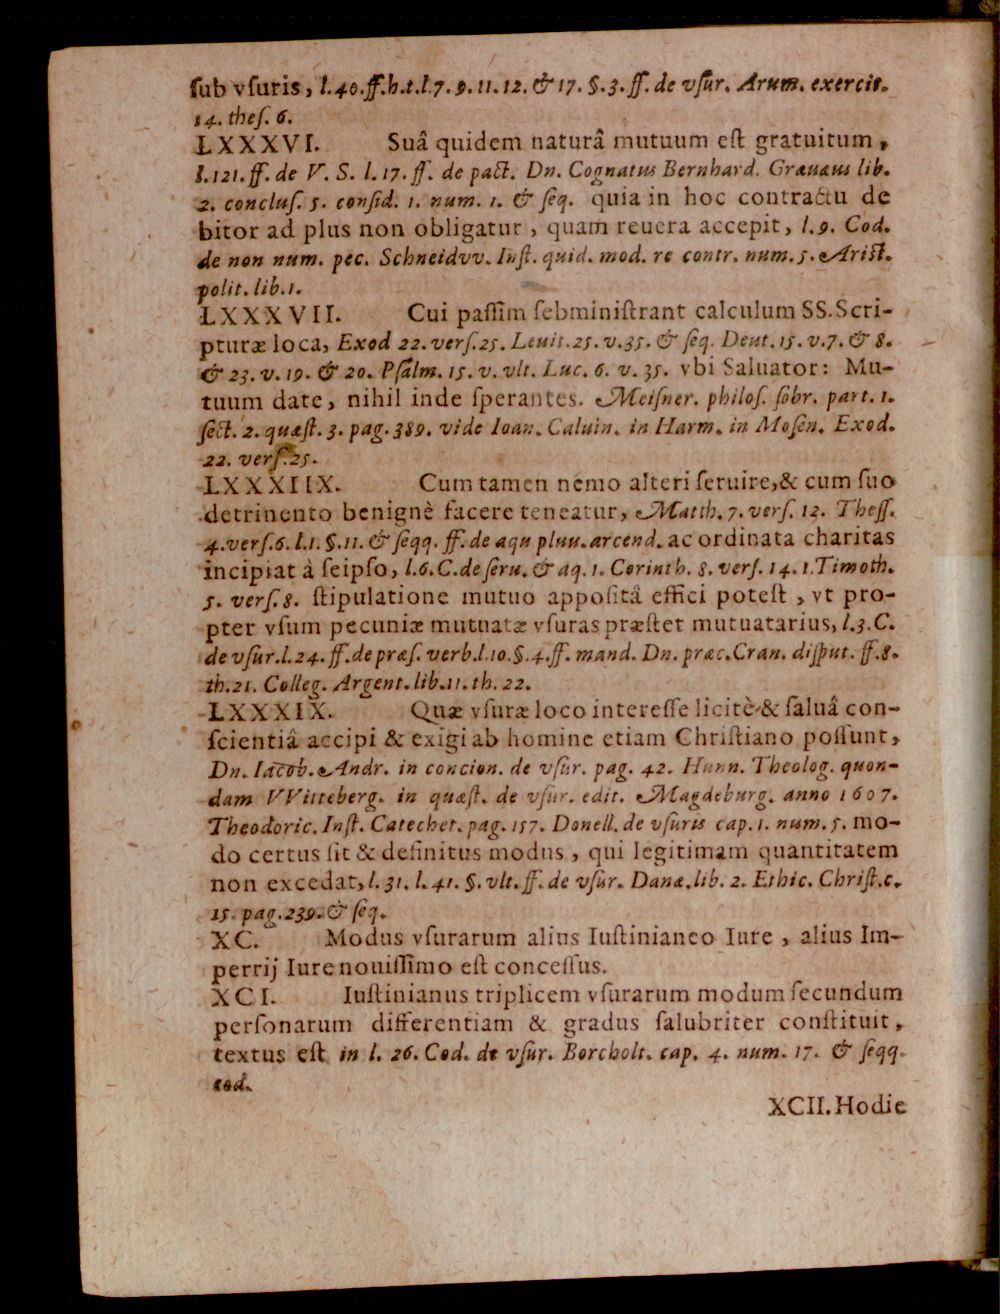 ſub vſuris, l.40.ff.h.t.l.7.9.11.12. & 17. §.3.ff. de vſur. Arum. exercit.
14. theſ. 6.
LXXXVI. Suâ quidem naturâ mutuum eſt gratuitum,
l.121.ff. de V. S. l.17. ff. de pact. Dn. Cognatus Bernhard. Grævæus lib.
2. concluſ. 5. conſid. 1. num. 1. & ſeq. quia in hoc contractu de
bitor ad plus non obligatur, quam reuera accepit, l.9. Cod.
de non num. pec. Schneidvv. Inſt. quid. mod. re contr. num.5. Ariſt.
polit. lib.1.
LXXXVII. Cui paſſim ſebminiſtrant calculum SS.Scri-
pturæ loca, Exod 22.verſ.25. Leuit.25.v.35. & ſeq. Deut.15.v.7. & 8.
& 23. v. 19. & 20. Pſalm. 15. v. vlt. Luc. 6. v. 35. vbi Saluator: Mu-
tuum date, nihil inde ſperantes. Meiſner. philoſ. ſobr. part. 1.
ſect. 2. quæſt. 3. pag. 389. vide Ioan. Caluin. in Harm. in Moſen. Exod.
22. verſ.25.
LXXXIIX. Cum tamen nemo alteri ſeruire,& cum ſuo
detrinento benignè facere teneatur, Matth. 7. verſ. 12. Theſſ.
4.verſ.6. l.1. §.11. & ſeqq. ff. de aqu pluu. arcend. ac ordinata charitas
incipiat à ſeipſo, l.6.C.de ſeru. & aq. 1. Corinth. 8. verſ. 14. 1.Timoth.
5. verſ.8. ſtipulatione mutuo appoſitâ effici poteſt, vt pro-
pter vſum pecuniæ mutuatæ vſuras præſtet mutuatarius, l.3.C.
de vſur.l.24. ff.de præſ. verb.l.10.§.4.ff. mand. Dn. præc.Cran. diſput. ff.8.
th.21. Colleg. Argent.lib.11.th.22.
LXXXIX. Quæ vſuræ loco intereſſe licitè & ſaluâ con-
ſcientiâ accipi & exigi ab homine etiam Chriſtiano poſſunt,
Dn. Iacob. Andr. in concion. de vſur. pag. 42. Hunn. Theolog. quon-
dam VVitteberg. in quæſt. de vſur. edit. Magdeburg. anno 1607.
Theodoric. Inſt. Catechet. pag. 157. Donell. de vſuris cap.1. num.5. mo-
do certus ſit & definitus modus, qui legitimam quantitatem
non excedat, l.31. l.41. §. vlt. ff. de vſur. Danæ. lib. 2. Ethic. Chriſt.c.
15. pag.239. & ſeq.
XC. Modus vſurarum alius Iuſtinianeo Iure, alius Im-
perrij Iure nouiſſimo eſt conceſſus.
XCI. Iuſtinianus triplicem vſurarum modum ſecundum
perſonarum differentiam & gradus ſalubriter conſtituit,
textus eſt in l. 26. Cod. de vſur. Borcholt. cap. 4. num. 17. & ſeqq.
eod.
XCII. Hodie